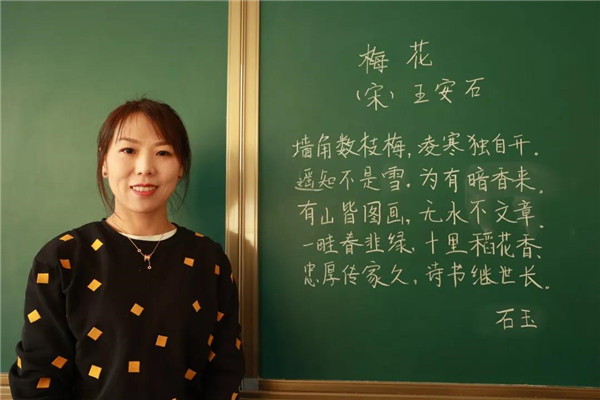 梅花
(宋) 王安石
墙角数枝梅，凌寒独自开.
遥知不是雪.为有暗香来.
有山皆图画，无水不文章.
一畦春韭绿，十里稻花香、
忠厚传家久，诗书继世长.
石玉